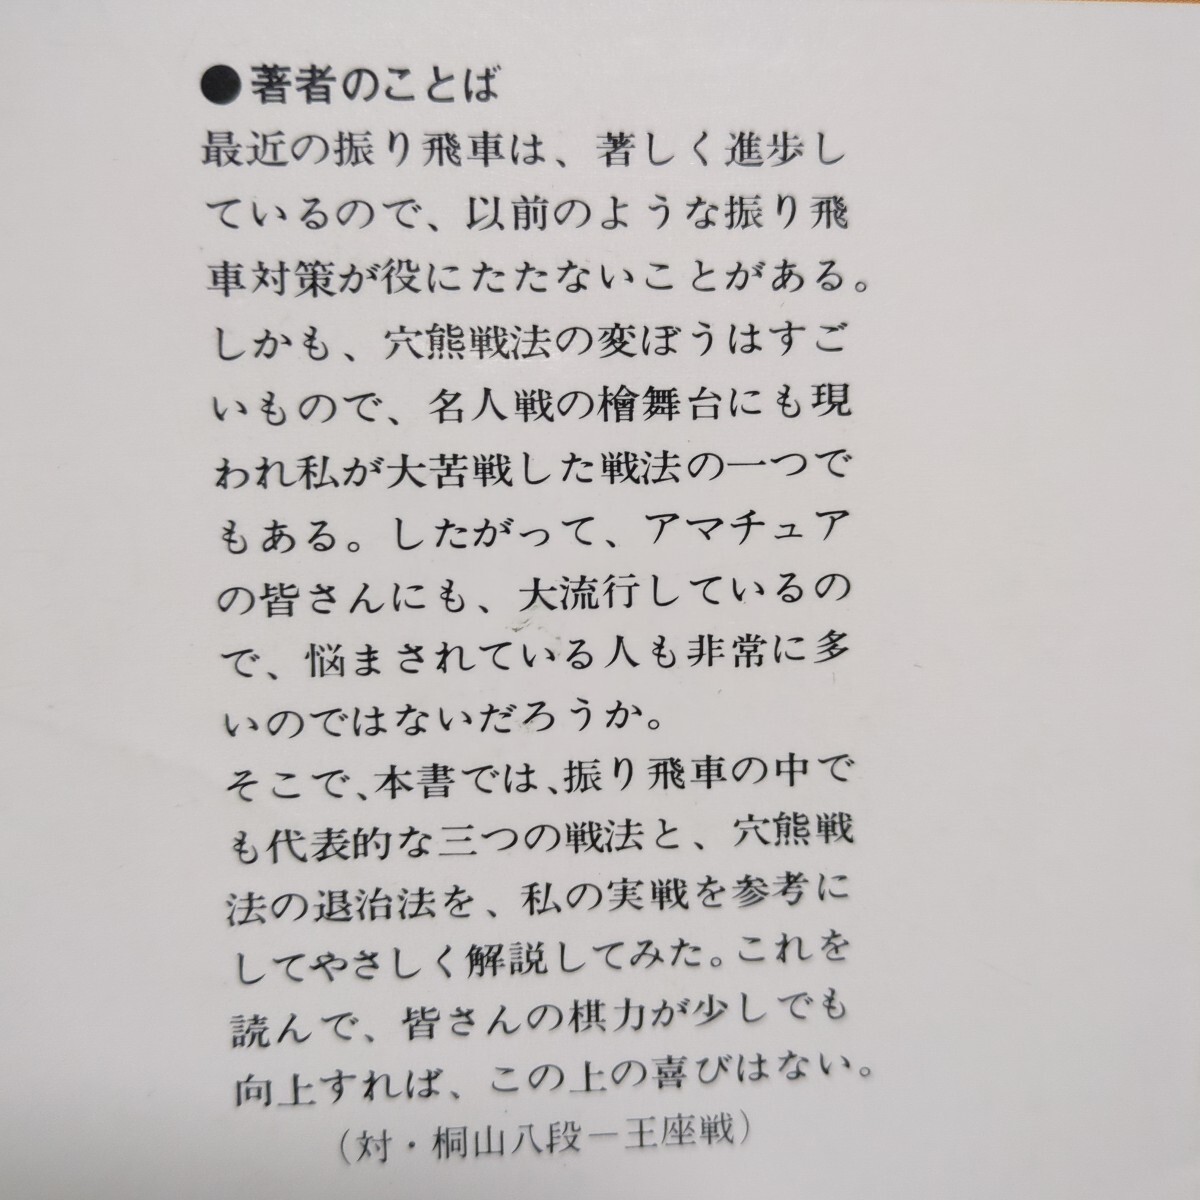 ●著者のことば
最近の振り飛車は、著しく進歩し
ているので、以前のような振り飛
車対策が役にたたないことがある。
しかも、穴熊戦法の変ぼうはすご
いもので、名人戦の檜舞台にも現
われ私が大苦戦した戦法の一つで
もある。したがって、アマチュア
の皆さんにも、大流行しているの
で、悩まされている人も非常に多
いのではないだろうか。
そこで、本書では、振り飛車の中で
も代表的な三つの戦法と、穴熊戦
法の退治法を、私の実戦を参考に
してやさしく解説してみた。これを
読んで、皆さんの棋力が少しでも
向上すれば、この上の喜びはない。
(対・桐山八段－王座戦)